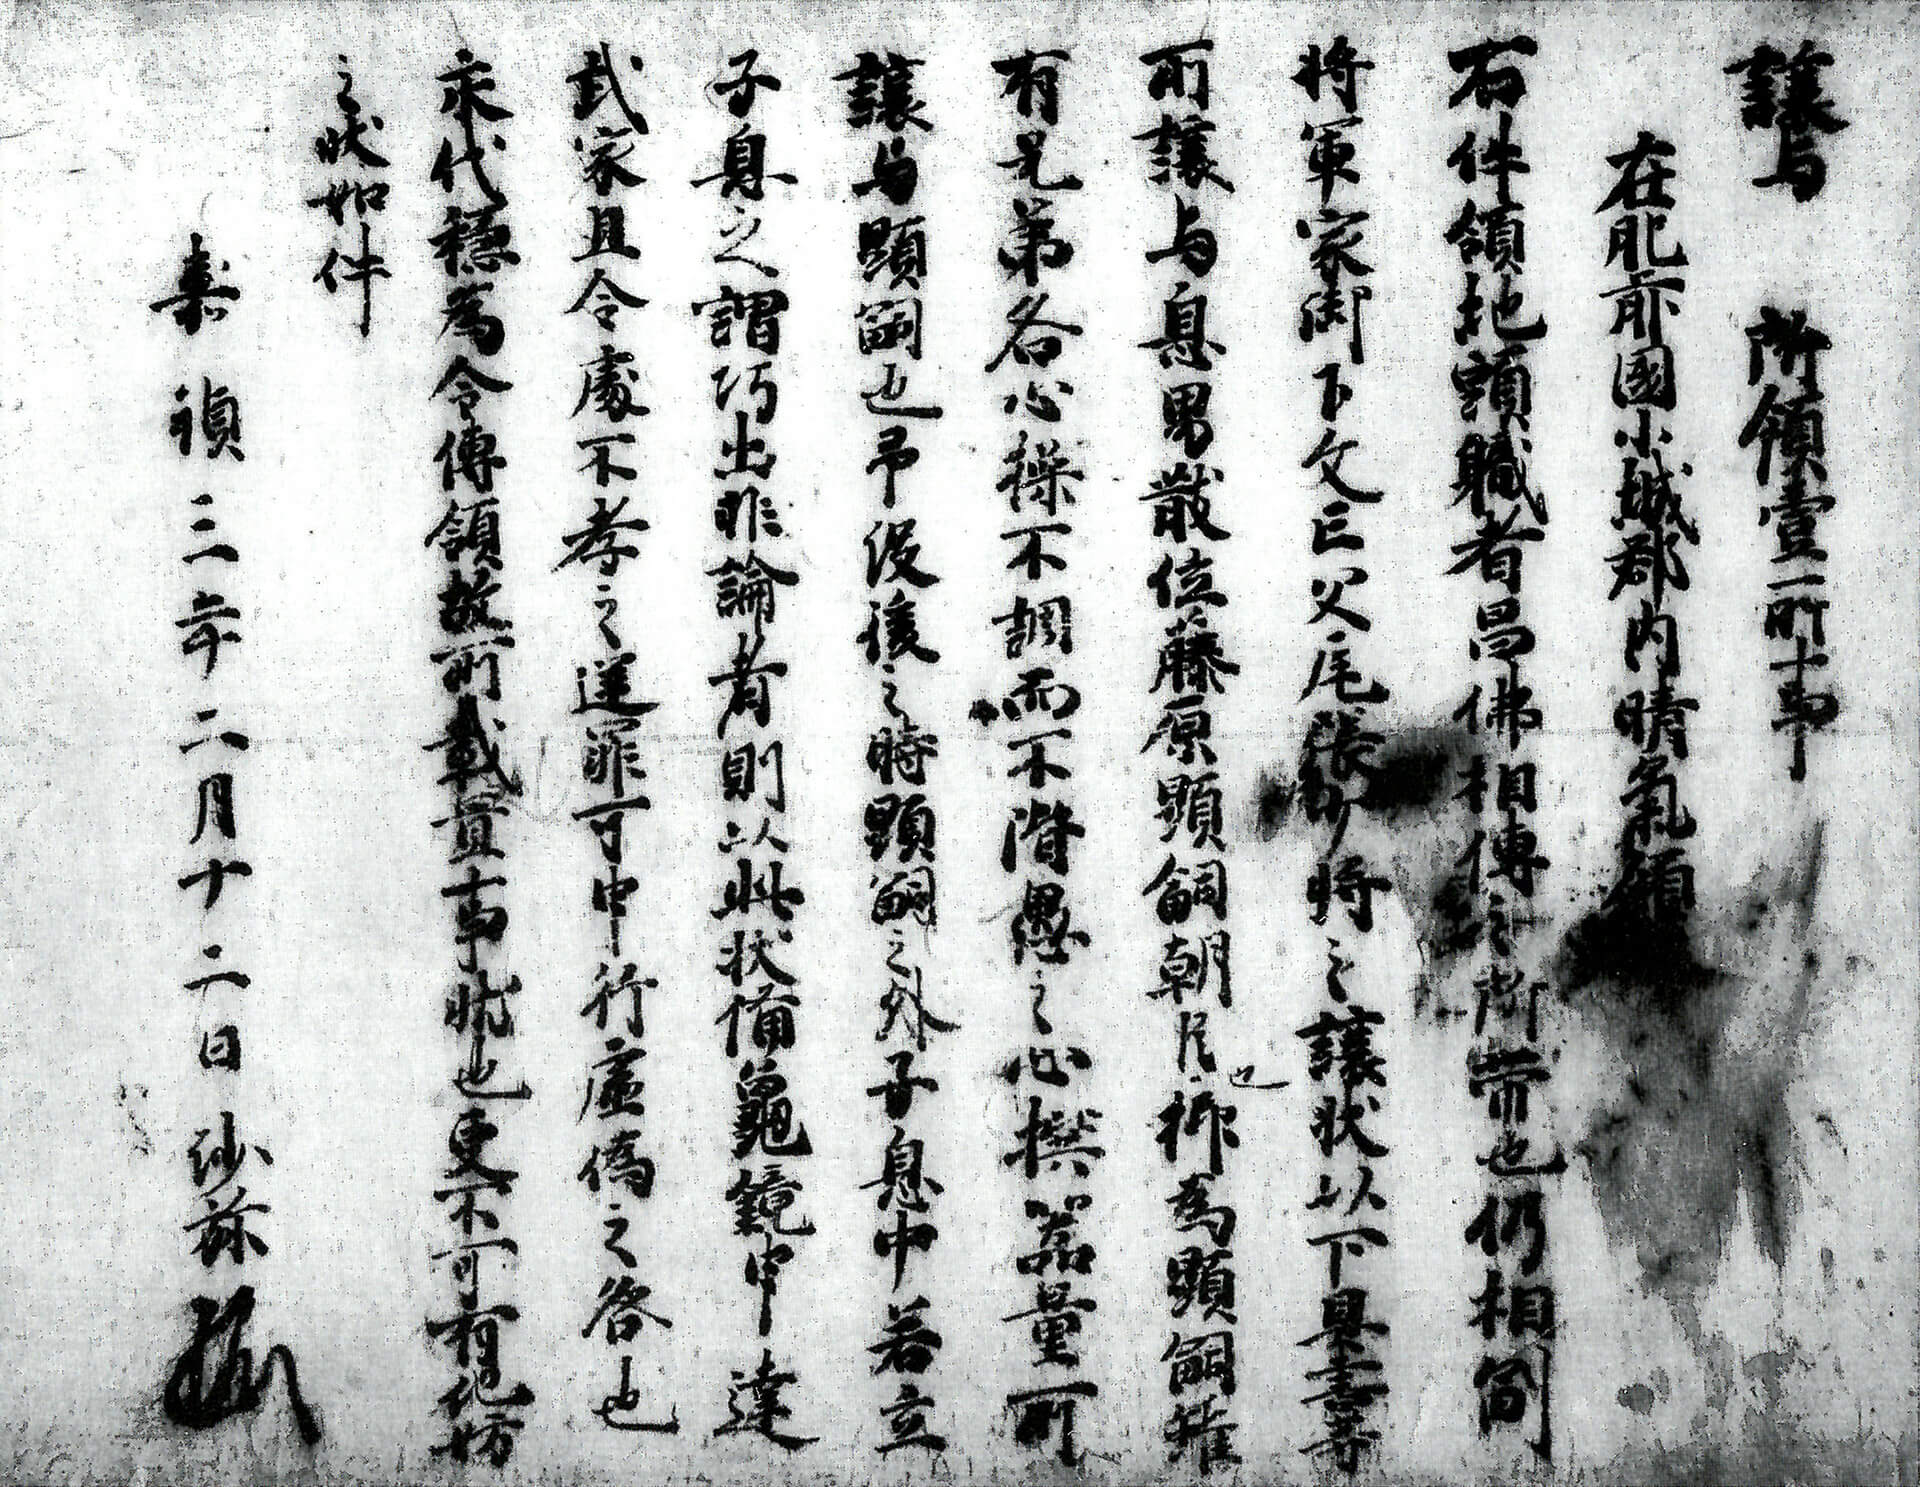 譲与　所領壹所事
在肥前國小城郡内晴氣領
右件領地頭職者昌佛相傳之所帯也仍相副
将軍家御下文亡父尾張少将之譲状以下具書等
所譲与息男散位藤原顕嗣朝臣也抑為顕嗣雖
有兄弟各心操不調而不階愚之心撰器量所
譲与顕嗣也予没後之時顕嗣之外子息中若立
子息之謂巧出非論者則以此状備龜鏡申達
武家且令處不孝之逆罪可申行虚偽之咎也
永代穏為令傳領故所載置事状也更不可有他妨
之状如件
嘉禎三年二月十二日沙弥